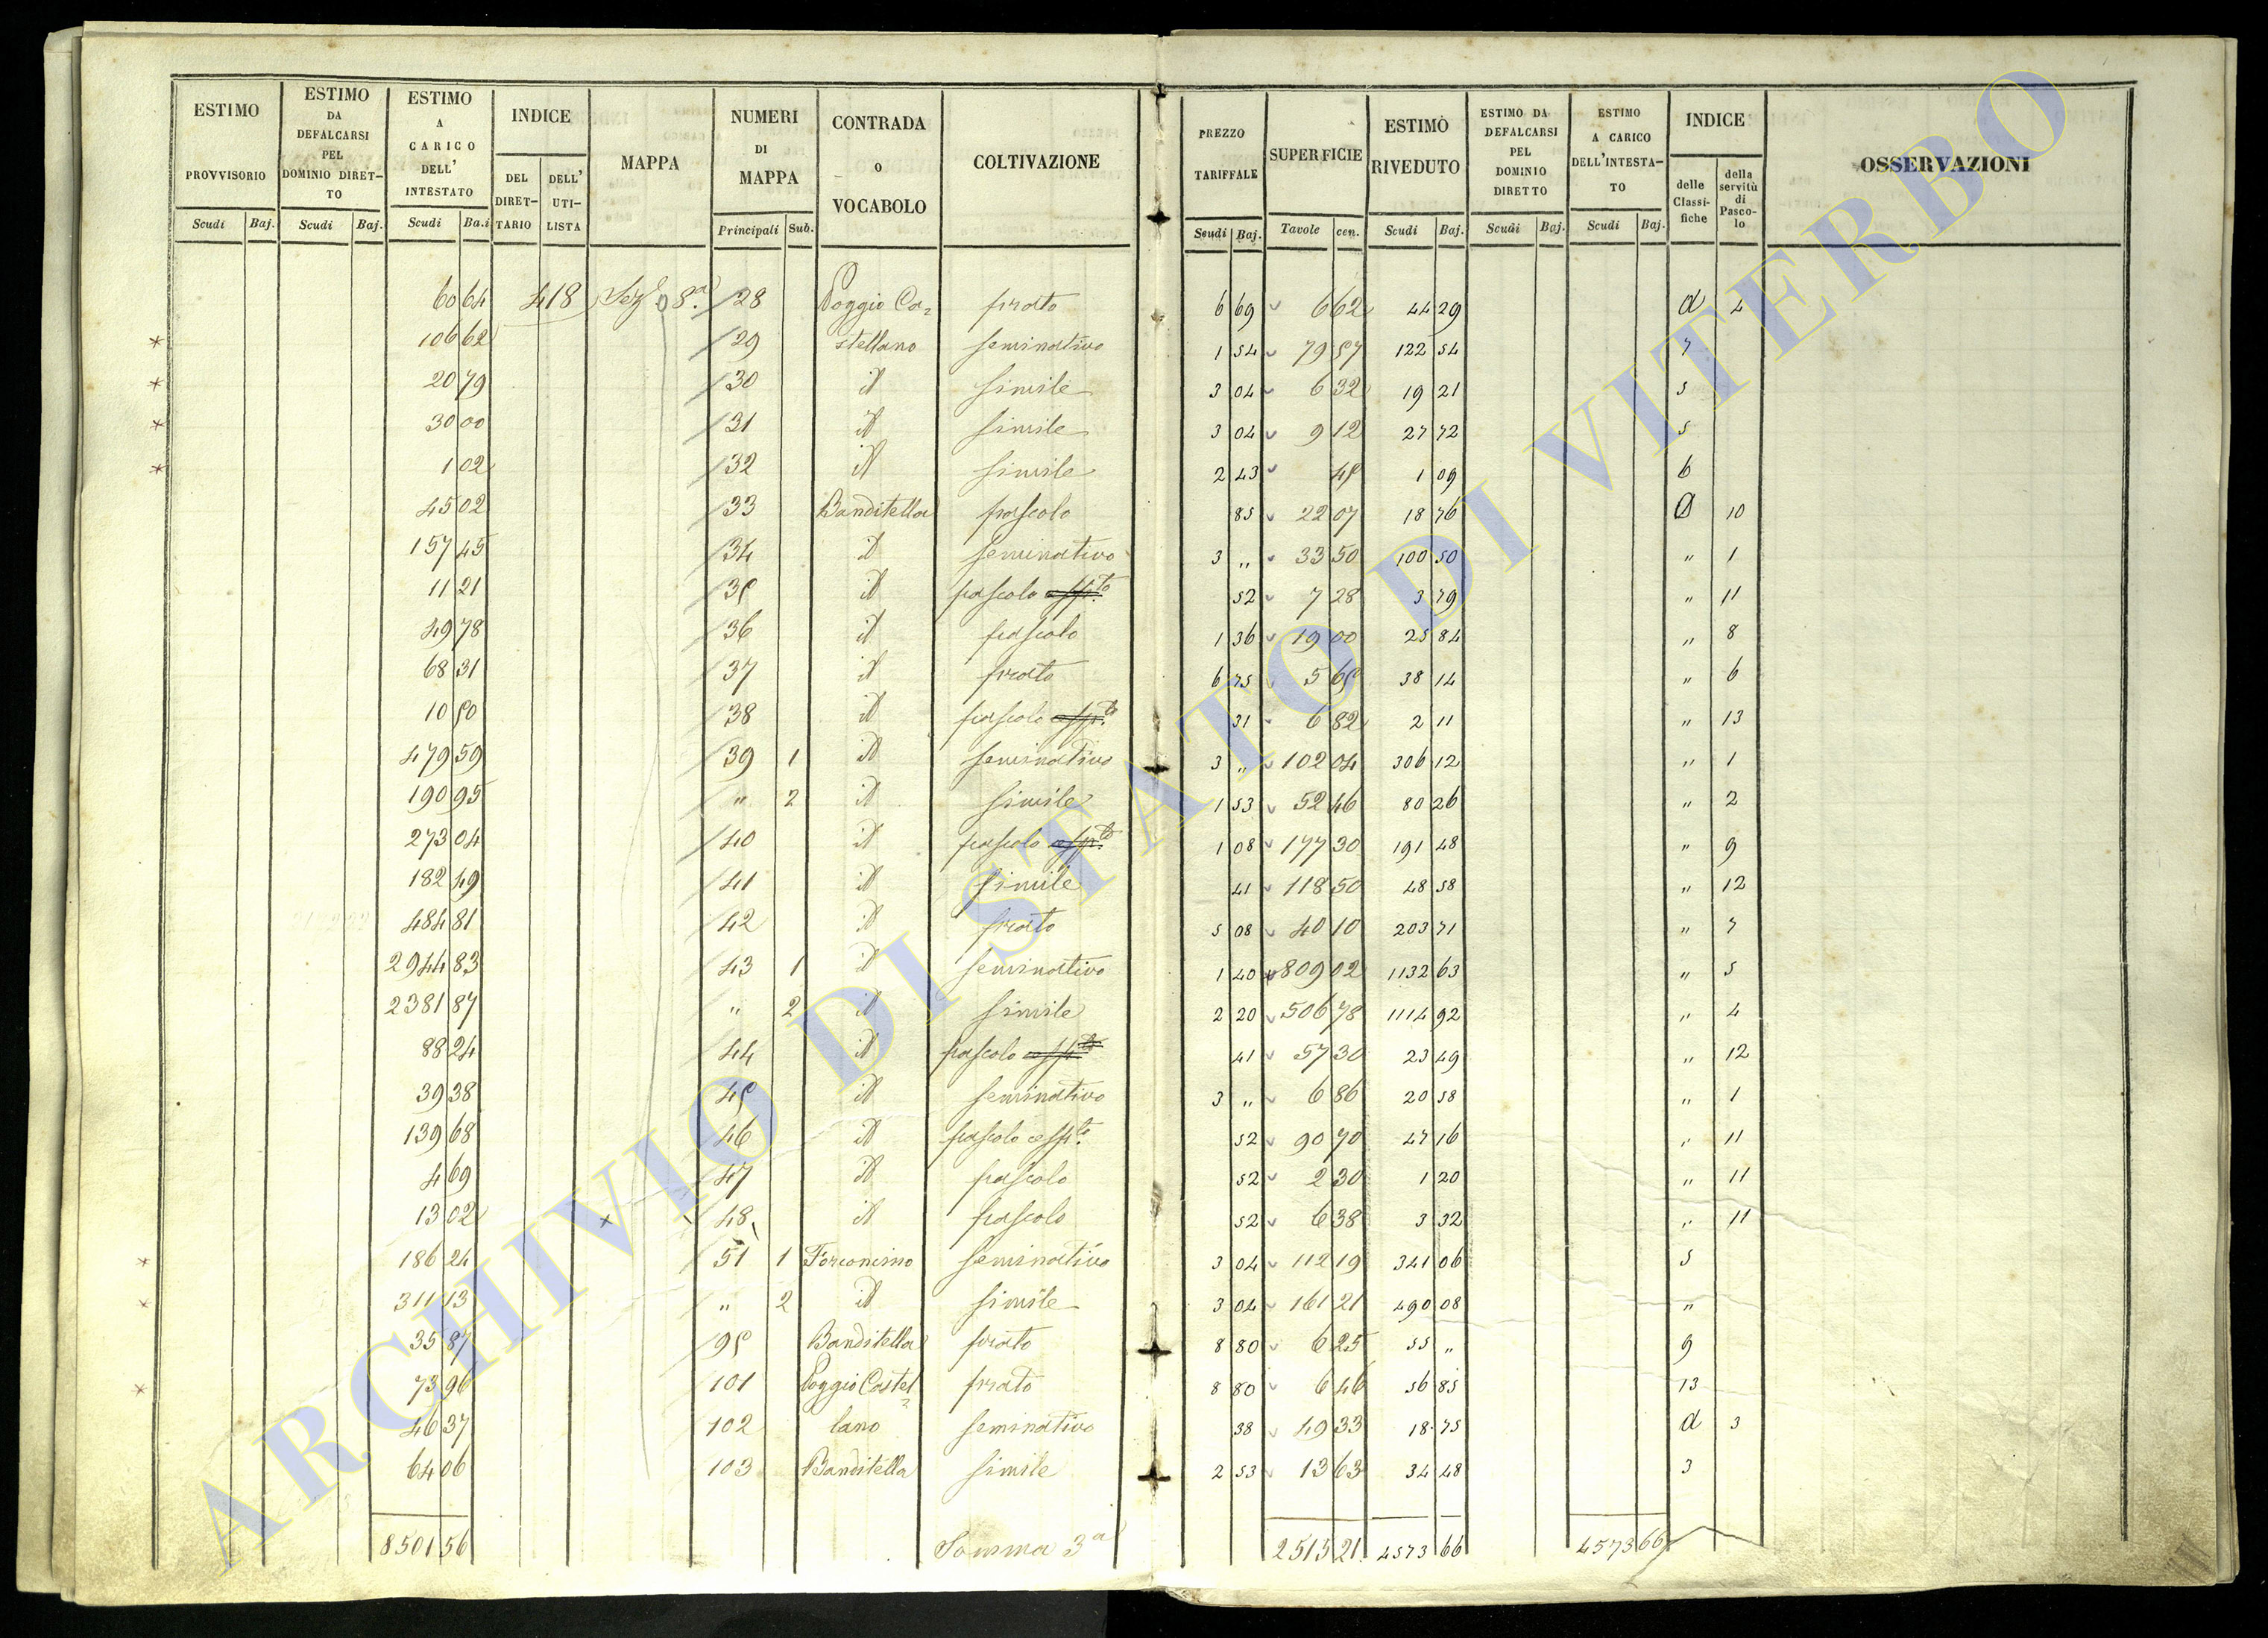 ESTIMO PROVVISORIO Scudi Baj.
ESTIMO DA DEFALCARSI PEL DOMINIO DIRET-TO Scudi Baj.
ESTIMO A CARICO DELL' INTESTATO Scudi Ba.i
INDICE DEL DIRET-TARIO DELL' UTI-LISTA
MAPPA
NUMERI DI MAPPA Principali Sub.
CONTRADA o VOCABOLO
COLTIVAZIONE
PREZZO TARIFFALE Scudi Baj.
SUPERFICIE Tavole cen.
ESTIMO RIVEDUTO Scudi Baj.
ESTIMO DA DEFALCARSI PEL DOMINIO DIRETTO Scudi Baj.
ESTIMO A CARICO DELL'INTESTA-TO Scudi Baj.
INDICE delle Classi-fiche della servitù di Pasco-lo
OSSERVAZIONI
60 64 418 Sez. 8ª 28 Poggio Ca= prato 6 69 6 62 44 29 d 4
* 106 62 29 stellano seminativo 1 54 79 57 122 54 7
* 20 79 30 id simile 3 04 6 32 19 21 5
* 30 00 31 id simile 3 04 9 12 27 72 5
* 1 02 32 id simile 2 43 45 1 09 6
45 02 33 Banditella pascolo 85 22 07 18 76 10
157 45 34 id seminativo 3 „ 33 50 100 50 " 1
11 21 35 id pascolo 52 7 28 3 79 " 11
49 78 36 id pascolo 1 36 19 00 25 84 " 8
68 31 37 id prato 6 75 5 65 38 14 " 6
10 50 38 id pascolo 31 6 82 2 11 " 13
479 59 39 1 id seminativo 3 „ 102 04 306 12 " 1
190 95 " 2 id simile 1 53 52 46 80 26 " 2
273 04 40 id pascolo 1 08 177 30 191 48 " 9
182 49 41 id simile 41 118 50 48 58 " 12
484 81 42 id prato 5 08 40 10 203 71 " 7
2944 83 43 1 id seminativo 1 40 809 02 1132 63 " 5
2381 87 " 2 id simile 2 20 506 78 1114 92 " 4
88 24 44 id pascolo 41 57 30 23 49 " 12
39 38 45 id seminativo 3 „ 6 86 20 58 " 1
139 68 46 id pascolo 52 90 70 47 16 " 11
4 69 47 id pascolo 52 2 30 1 20 " 11
13 02 x 48 id pascolo 52 6 38 3 32 " 11
* 186 24 51 1 Forconcino seminativo 3 04 112 19 341 06 5
* 311 13 " 2 id simile 3 04 161 21 490 08 "
35 87 95 Banditella prato 8 80 6 25 55 „ 9
* 73 96 101 Poggio Castel= prato 8 80 6 46 56 85 13
46 37 102 lano seminativo 38 49 33 18 75 d 3
64 06 103 Banditella simile 2 53 13 63 34 48 3
8501 56 Somma 3ª 2515 21 4573 66 4573 66
ARCHIVIO DI STATO DI VITERBO